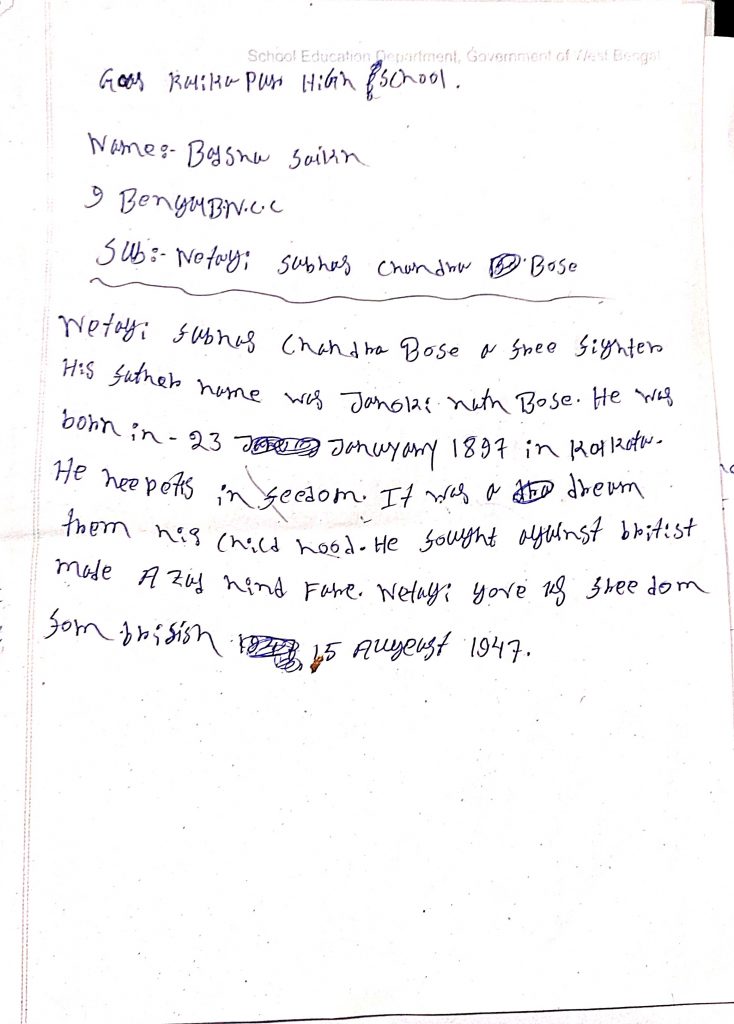 School Education Department, Government of West Bengal
Goas Kalika Pur HiGh School.
Name:- Barsha Saikh
9 Bengal BN.C.C
Sub:- Netaji Subhas Chandra Bose
Netaji Subhas Chandra Bose a free fighter
His father name was Janoki nath Bose. He was
born in - 23 Januyary 1897 in Kolkata.
He in feedom. It was a dream
them his Child hood. He fought against britist
made Azad hind Fare. Netaji gove us freedom
fom british 15 Augeust 1947.